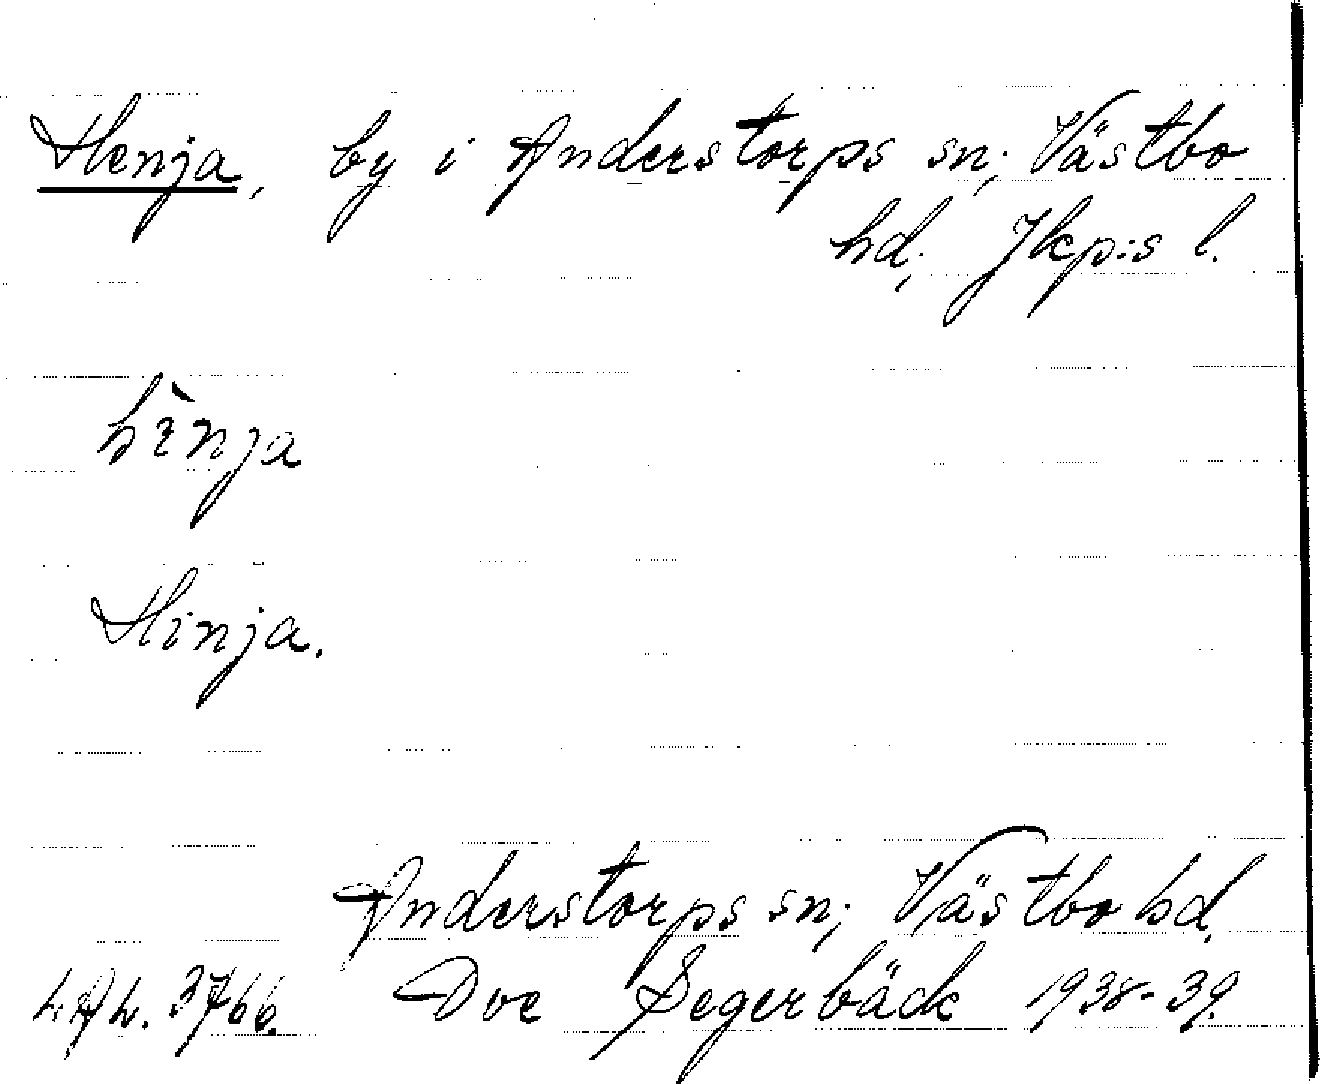 Henja, by i Anderstorps sn; Västbo
hd; Jkp:s l.
hènja
Hinja.
Anderstorps sn; Västbo hd,
3766. Ove Segerbäck 1938-39.